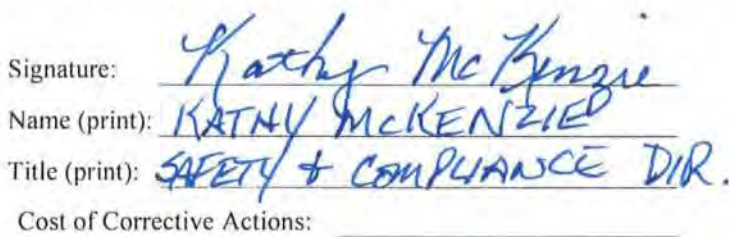 Signature: Kathy McKenzie
Name (print): KATHY McKENZIE
Title (print): SAFETY + COMPLIANCE DIR.
Cost of Corrective Actions: